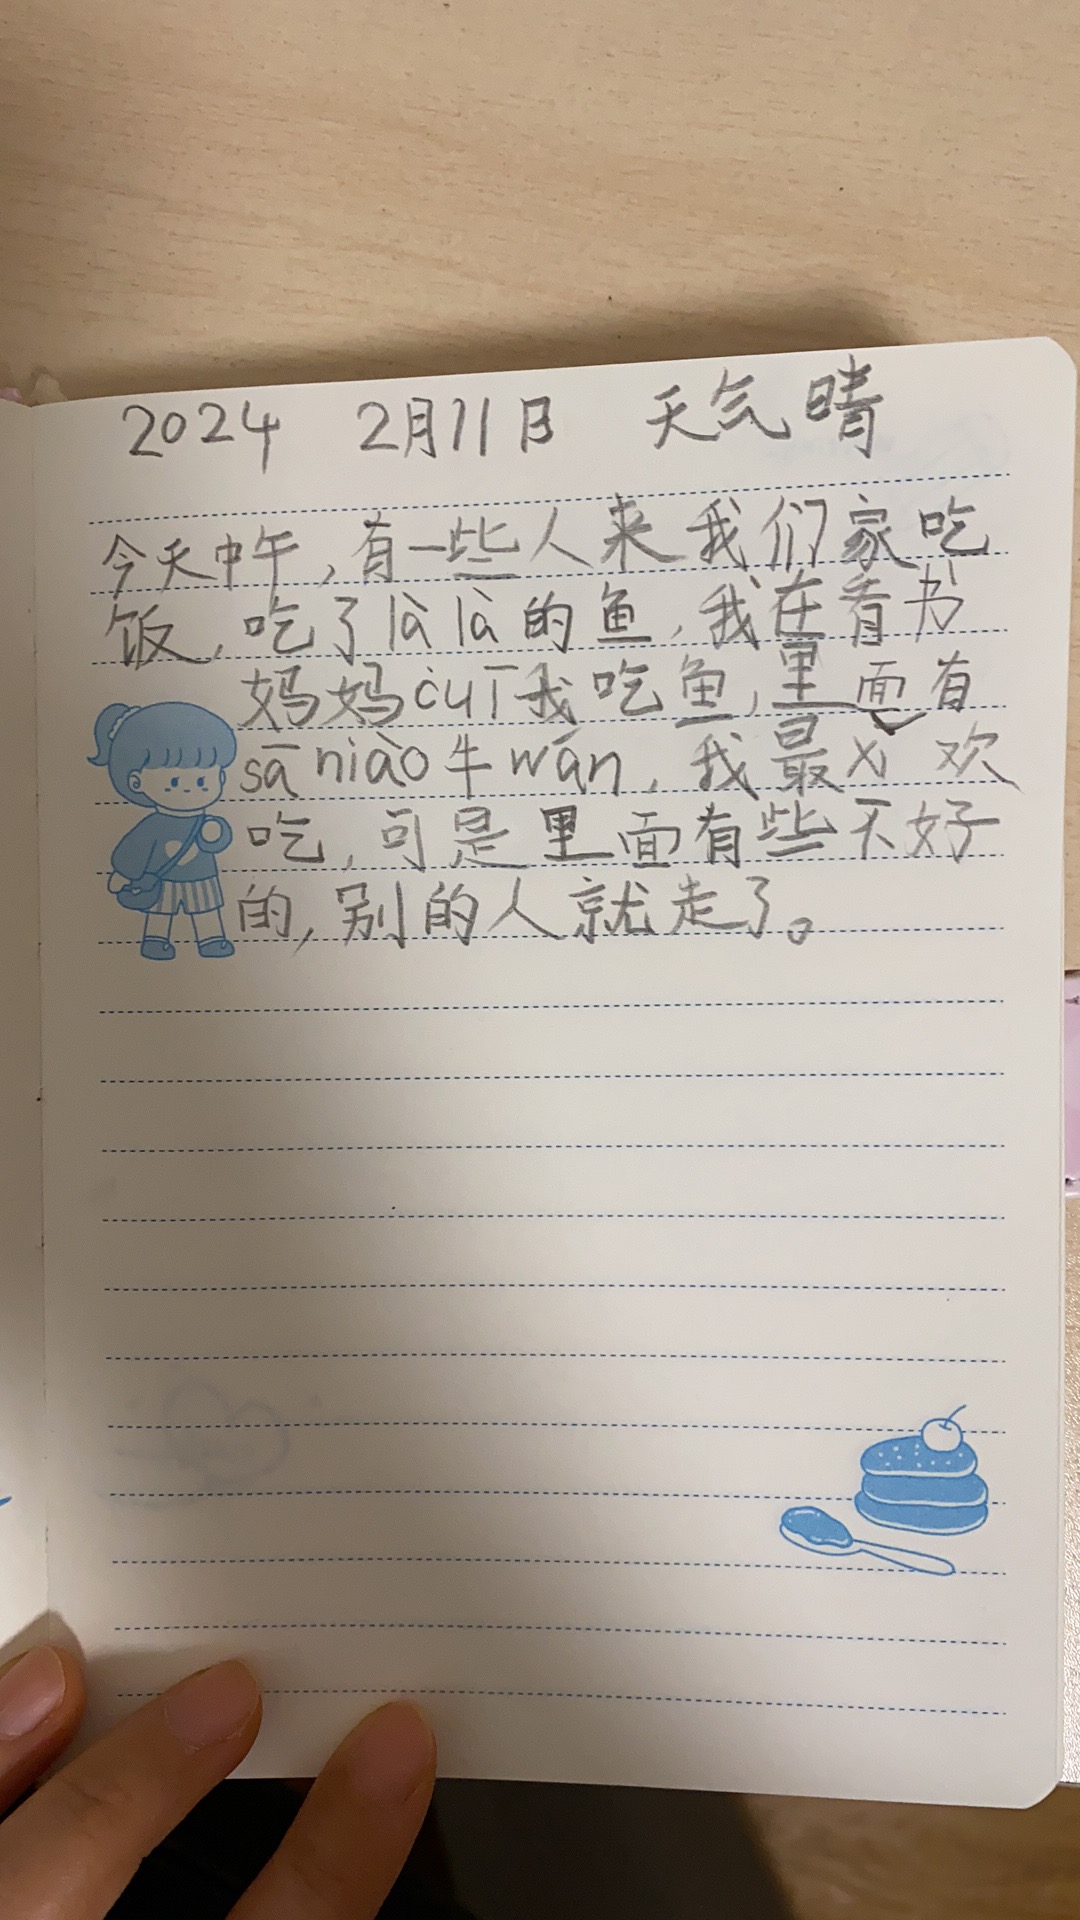 2024 2月11日 天气晴
今天中午，有一些人来我们家吃
饭，吃了là là的鱼，我在看书
妈妈cuī我吃鱼，里面有
sā niào牛wán，我最xǐ欢
吃，可是里面有些不好
的，别的人就走了。